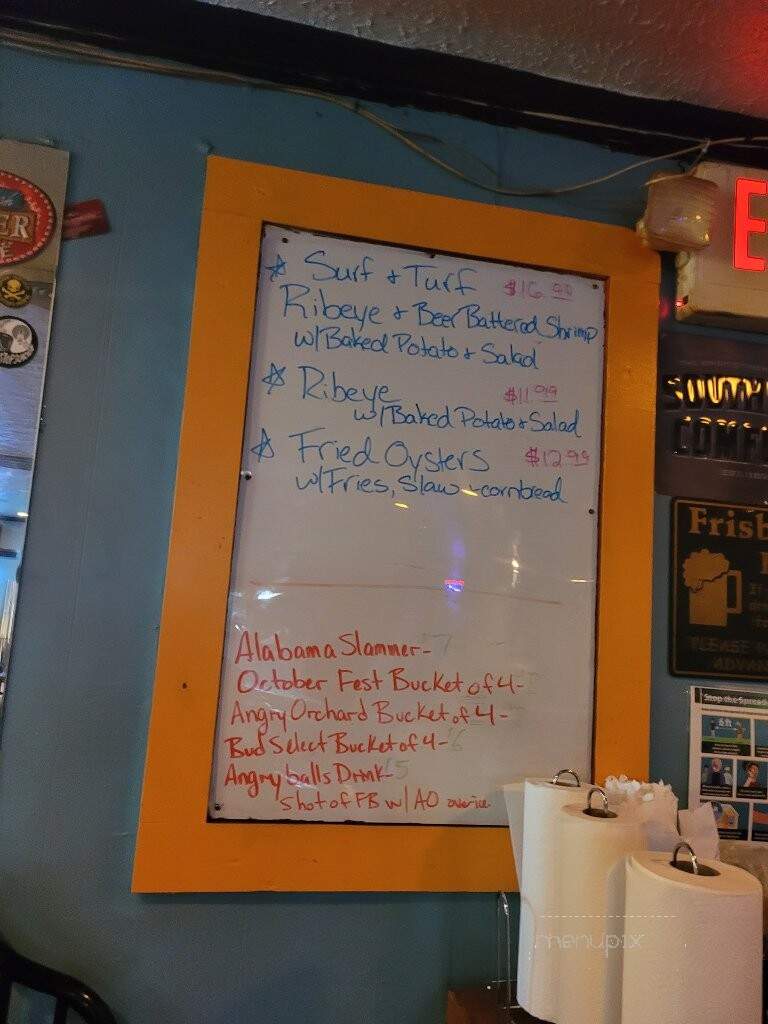 ☆ Surf + Turf $16.99
Ribeye + Beer Battered Shrimp
w/Baked Potato + Salad
☆ Ribeye $11.99
w/Baked Potato + Salad
☆ Fried Oysters $12.99
w/Fries, Slaw + cornbread
Alabama Slammer- 7
October Fest Bucket of 4-
Angry Orchard Bucket of 4-
Bud Select Bucket of 4- 6
Angry balls Drink- 5
Shot of FB w/ AO over ice
ER
E
SOUTH
COMF
Frisb
PLEASE
ADVAN
Stop the Spread
6 ft
menupix